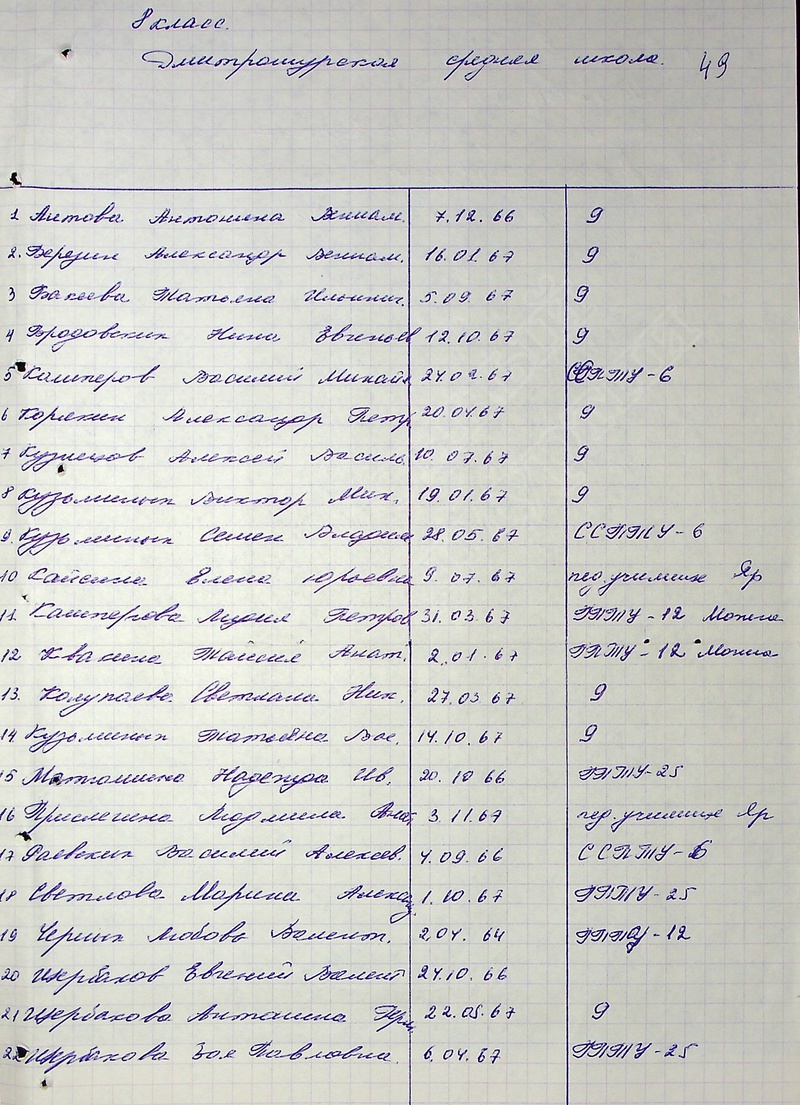 8 класс.
Дмитрошурская средняя школа. 49
1 Аитова Антонина Вениам. 7.12.66 9
2. Березин Александр Вениам. 16.01.67 9
3 Бакеева Татьяна Ильинич. 5.09.67 9
4 Бродовских Нина Евгеньев 12.10.67 9
5 Кашперов Василий Михайл 24.02.67 ССПТУ-6
6 Корякин Александр Петр 20.04.67 9
7 Кузнецов Алексей Василь 10.07.67 9
8 Кузьминых Виктор Мих. 19.01.67 9
9. Кузьминых Семен 28.05.67 ССПТУ-6
10 Кайсина Елена Юрьевна 9.07.67 пед.училище Яр
11. Кашперова Лидия Петров 31.03.67 ГПТУ-12 Можга
12 Квакина Таисия Анат. 2.01.67 ГПТУ-12 Можга
13. Колупаева Светлана Ник. 27.03 67 9
14 Кузьминых Татьяна Вас. 14.10.67 9
15 Матюшина Надежда Ив. 20.10 66 ГПТУ-25
16 Людмила Анат. 3.11.67 пед.училище Яр
17 Раевских Василий Алексев. 4.09.66 ССПТУ-6
18 Светлова Марина Александ. 1.10.67 ГПТУ-25
19 Черных Любовь Валент. 2.04. ГПТУ-12
20 Щербаков Евгений Валент 24.10.66
21 Щербакова Антонина 22.05.67 9
22 Щербакова Зоя Павловна. 6.04.67 ГПТУ-25